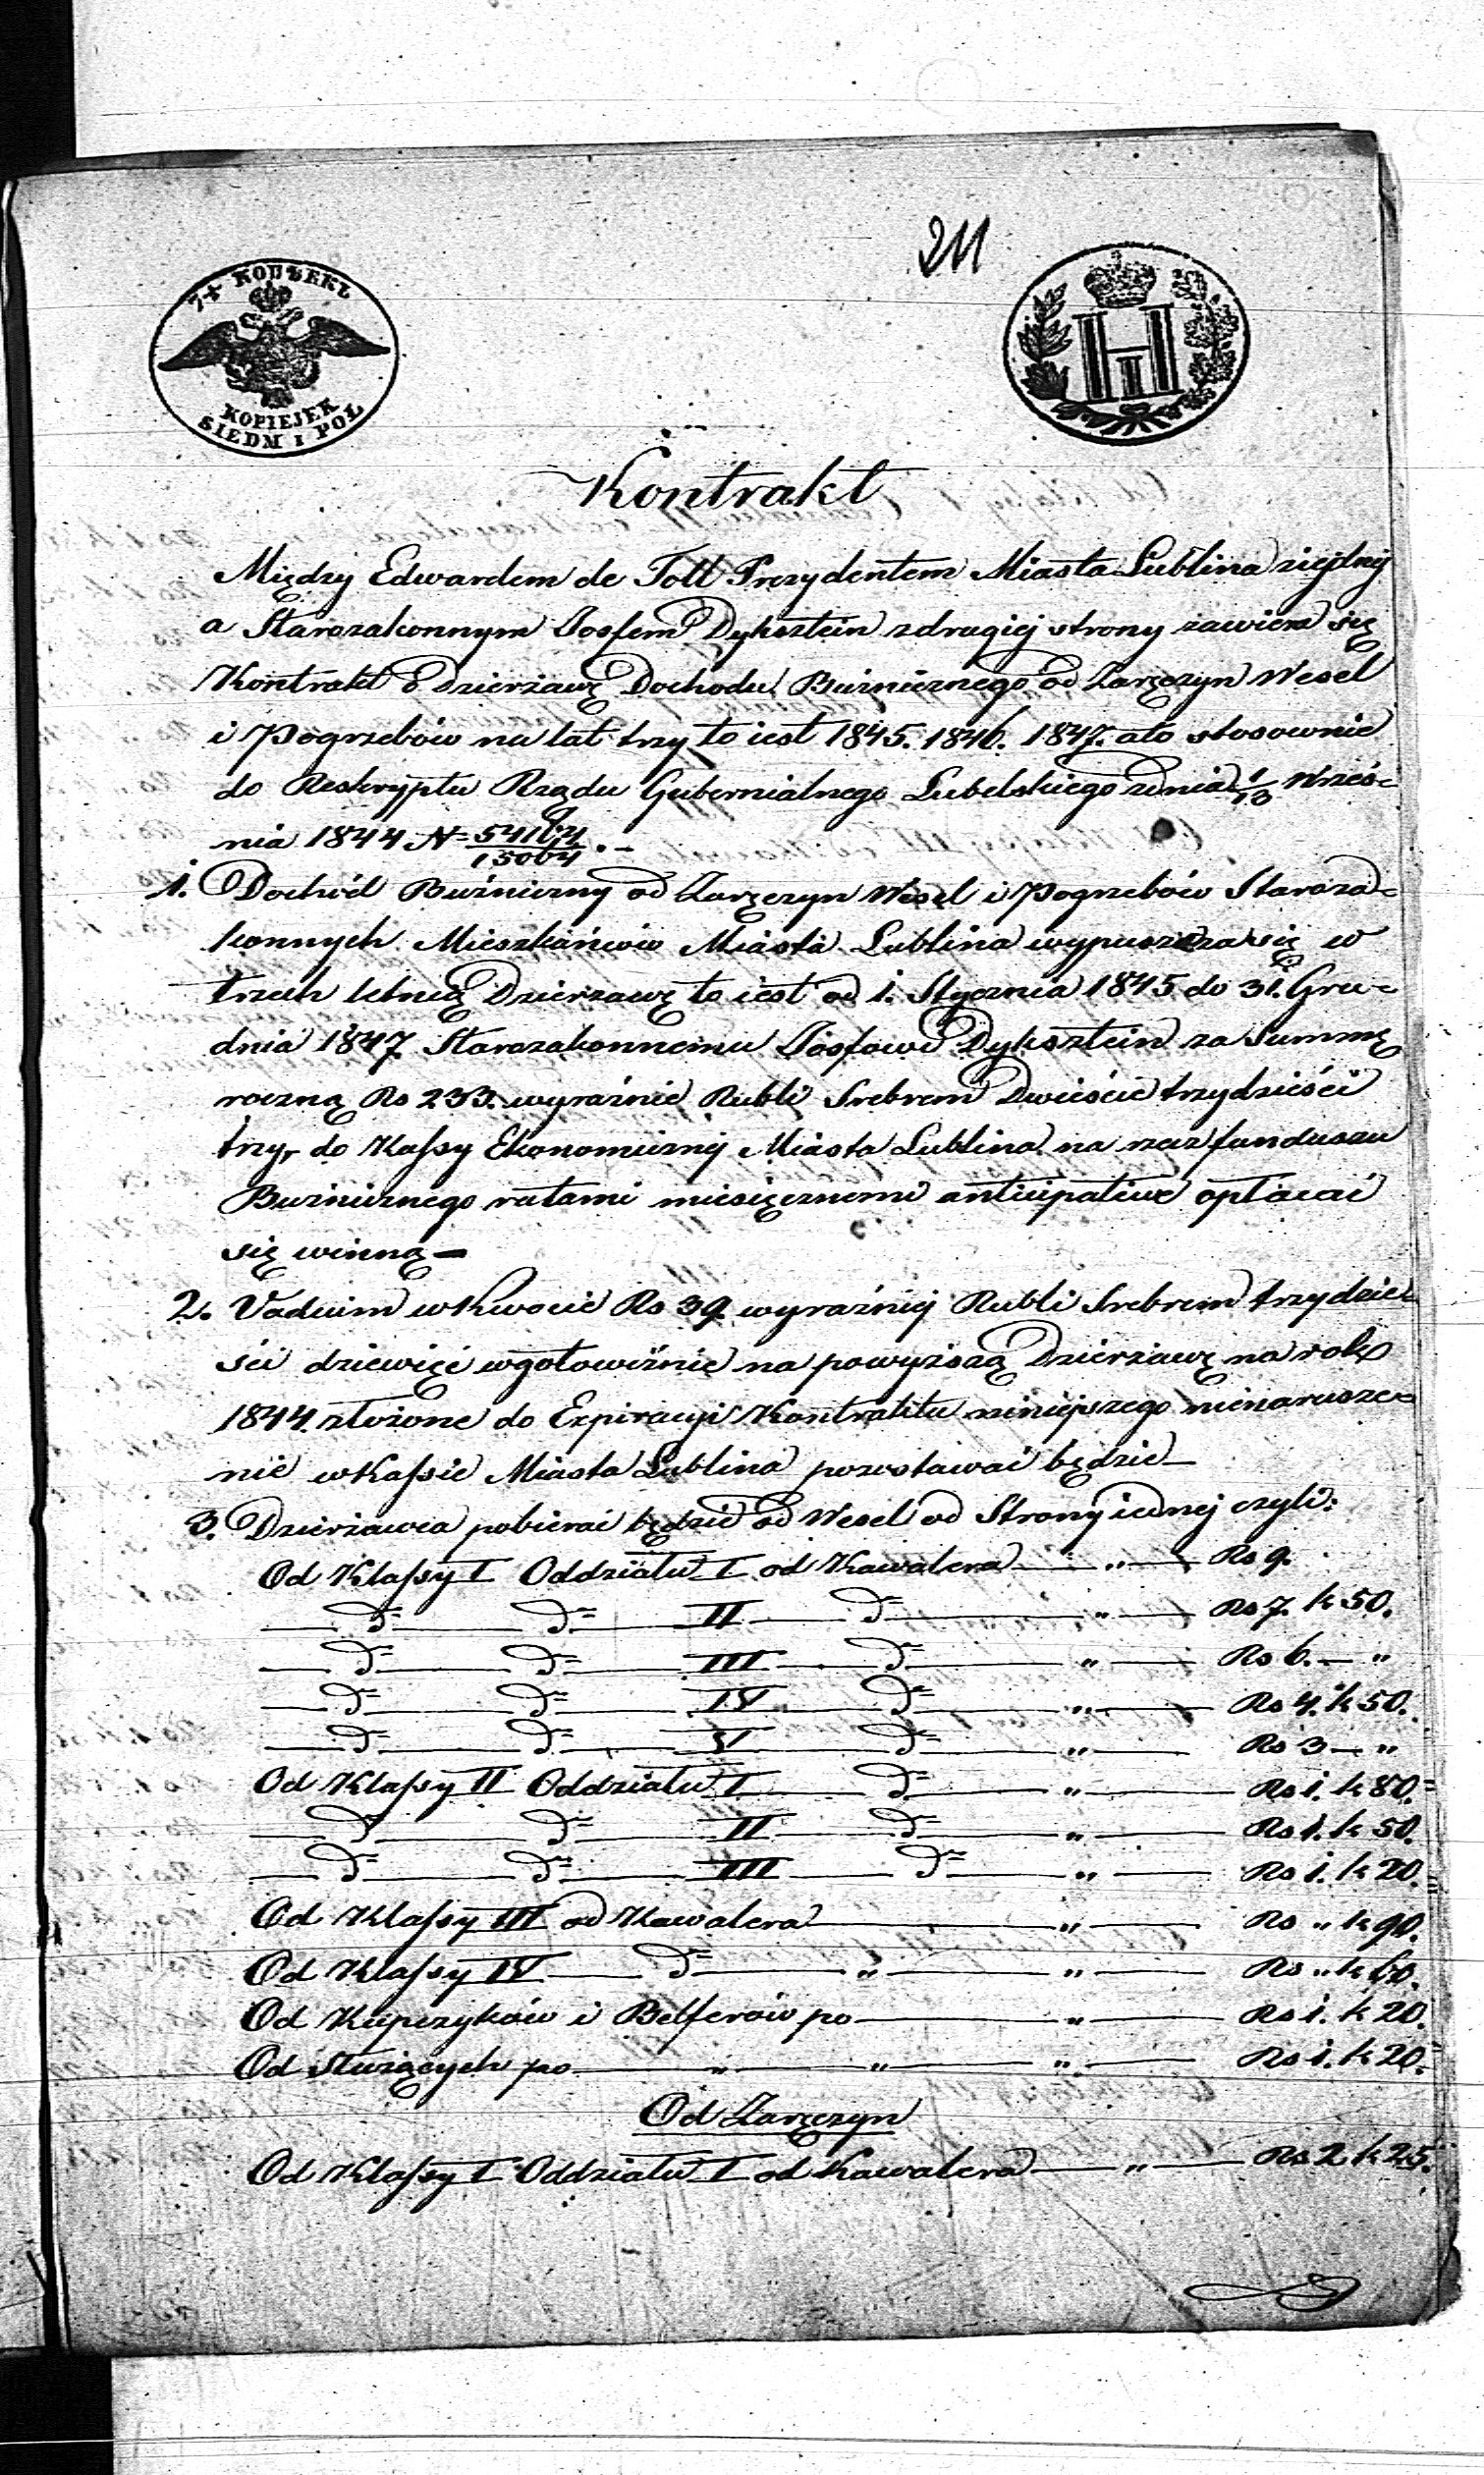 211
7½ КОПѢЕКЪ
KOPIEJEK
SIEDM I PÓŁ
H
I
Kontrakt
Między Edwardem de Toll Prezydentem Miasta Lublina z iednej
a Starozakonnym Josfem Dyksztein z drugiej strony zawiera się
Kontrakt o Dzierżawę Dochodu Bużnicznego od Zaręczyn Wesel
i Pogrzebów na lat trzy to iest 1845. 1846. 1847. a to stosownie
do Reskryptu Rządu Gubernialnego Lubelskiego z dnia 1/13 Wrześ-
nia 1844 N= 54164/15064 . -
1. Dochód Buźniczny od Zaręczyn Wesel i Pogrzebów Staroza-
konnych Mieszkańców Miasta Lublina wypuszcza się w
trzech letnią Dzierzawę to iest od 1. Stycznia 1845 do 31. Gru-
dnia 1847. Starozakonnemu Josfowi Dyksztein za Summę
roczną Rs 233. wyraźnie Rubli Srebrem Dwieście trzydzieści
trzy, do Kassy Ekonomicznej Miasta Lublina na rzecz funduszu
Buźnicznego ratami miesięcznemi anticipative opłacać
się winną —
2. Vadium w kwocie Rs 39 wyraźniej Rubli Srebrem trzydzie-
ści dziewięć w gotowiźnie na powyższą Dzierżawę na rok
1844. złożone do Expiracyi Kontraktu niniejszego nienarusze-
nie w Kassie Miasta Lublina pozostawać będzie —
3. Dzierżawca pobierać będzie od Wesel od Strony iednej czyli:
Od Klassy I Oddziału I od Kawalera — „ — Rs 9.
— d= — d= — II — d= — „ — Rs 7. k 50.
— d= — d= — III — d= — „ — Rs 6. — „
— d= — d= — IV — d= — „ — Rs 4. k 50.
— d= — d= — V — d= — „ — Rs 3 — „
Od Klassy II Oddziału I — d= — „ — Rs 1. k 80.
— d= — d= — II — d= — „ — Rs 1. k 50.
— d= — d= — III — d= — „ — Rs 1. k 20.
Od Klassy III od Kawalera — „ — Rs „ k 90.
Od Klassy IV — d= — „ — „ — Rs „ k 60.
Od Kupczyków i Belferów po — „ — Rs 1. k 20.
Od Służących po — „ — „ — „ — Rs 1. k 20.
Od Zaręczyn
Od Klassy I Oddziału I od Kawalera — „ — Rs 2 k 25.